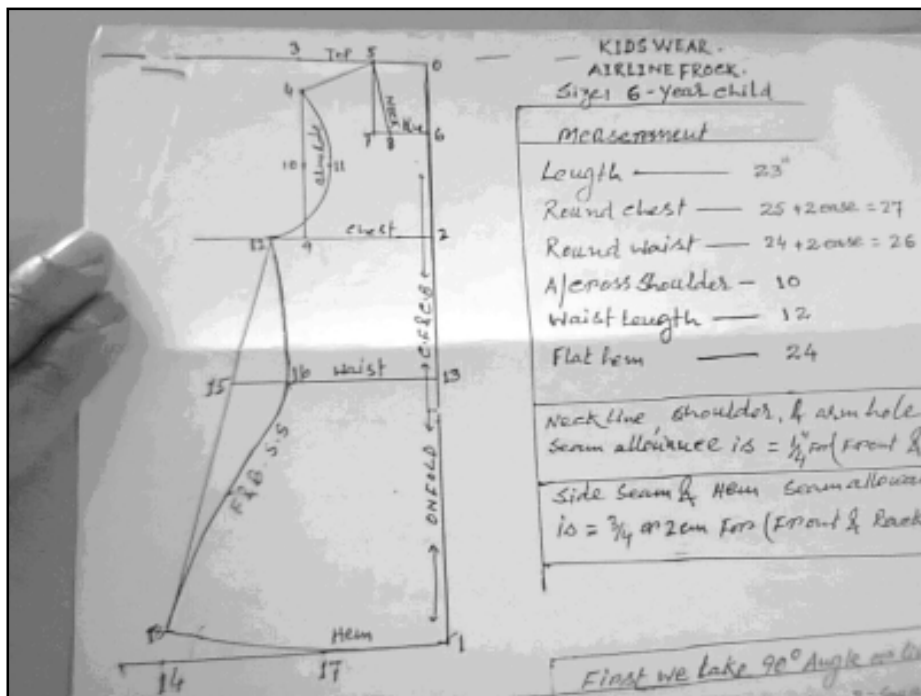 KIDS WEAR.
AIRLINE FROCK.
Size: 6-year child
Measerment
Length — 23"
Round chest — 25 + 2 ease = 27
Round waist — 24 + 2 ease = 26
A/cross shoulder - 10
Waist Length — 12
Flat hem — 24
Neck line shoulder, & arm hole
seam allowance is = 1/4" For (Front &
Side seam & Hem seam allowan
is = 3/4 or 2cm For (Front & Back
First we take 90° Angle
3 Top 5 0
4
NECK
7 8 6
10 armhole 11
12 9 chest 2
C.F & C.B
15 16 waist 13
F & B. S.S
ONFOLD
Hem 1
14 17